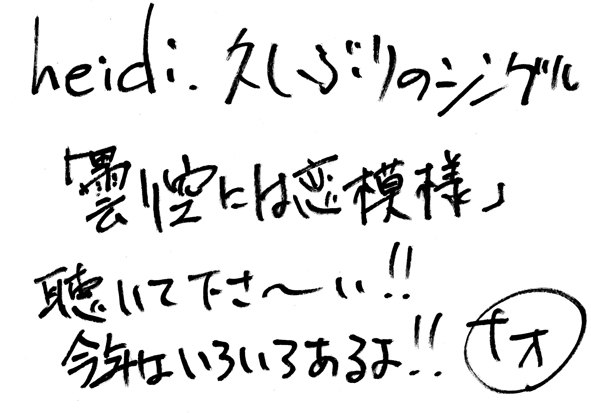 heidi. 久しぶりのシングル
「曇り空には恋模様」
聴いて下さ〜い!!
今年はいろいろあるよ!! ナオ